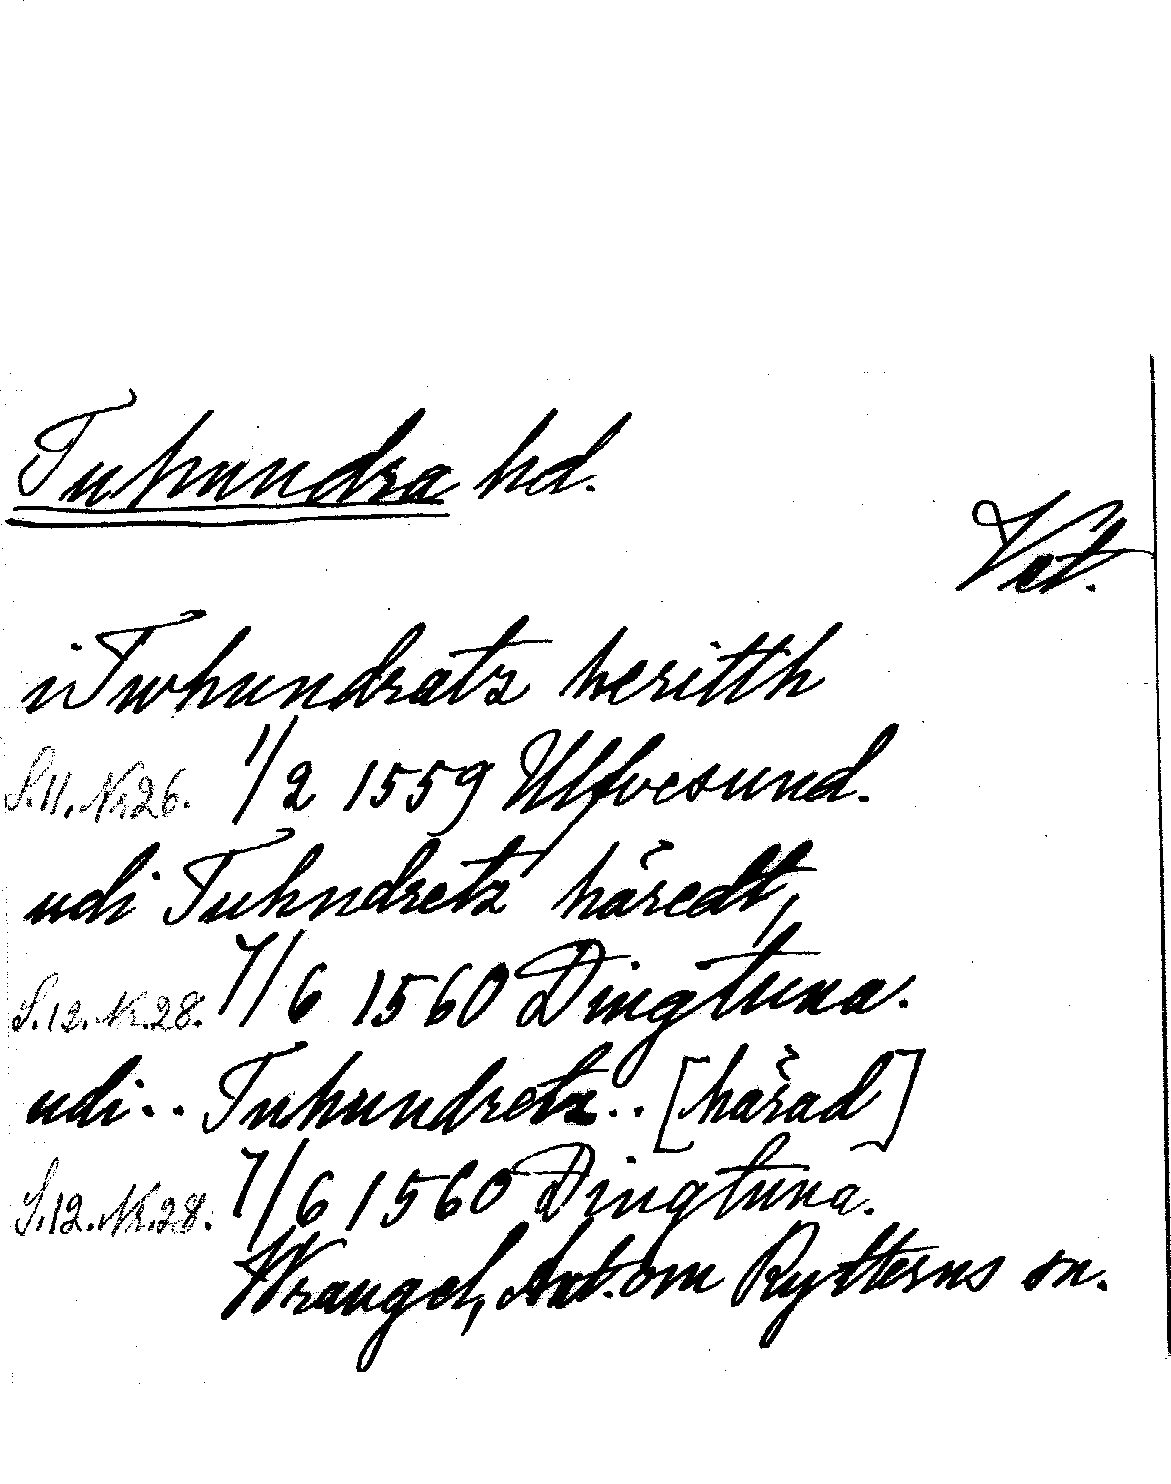 Tuhundra hd.
Vst.
i Twhundratz heritth
S.11. Nr.26. 1/2 1559 Ulfvesund.
udi Tuhndretz häredt,
S.12. Nr.28. 7/6 1560 Dingtuna.
udi.. Tuhundretz.. [härad]
S.12. Nr.28. 7/6 1560 Dingtuna.
Wrangel, Ant. om Rytterns sn.